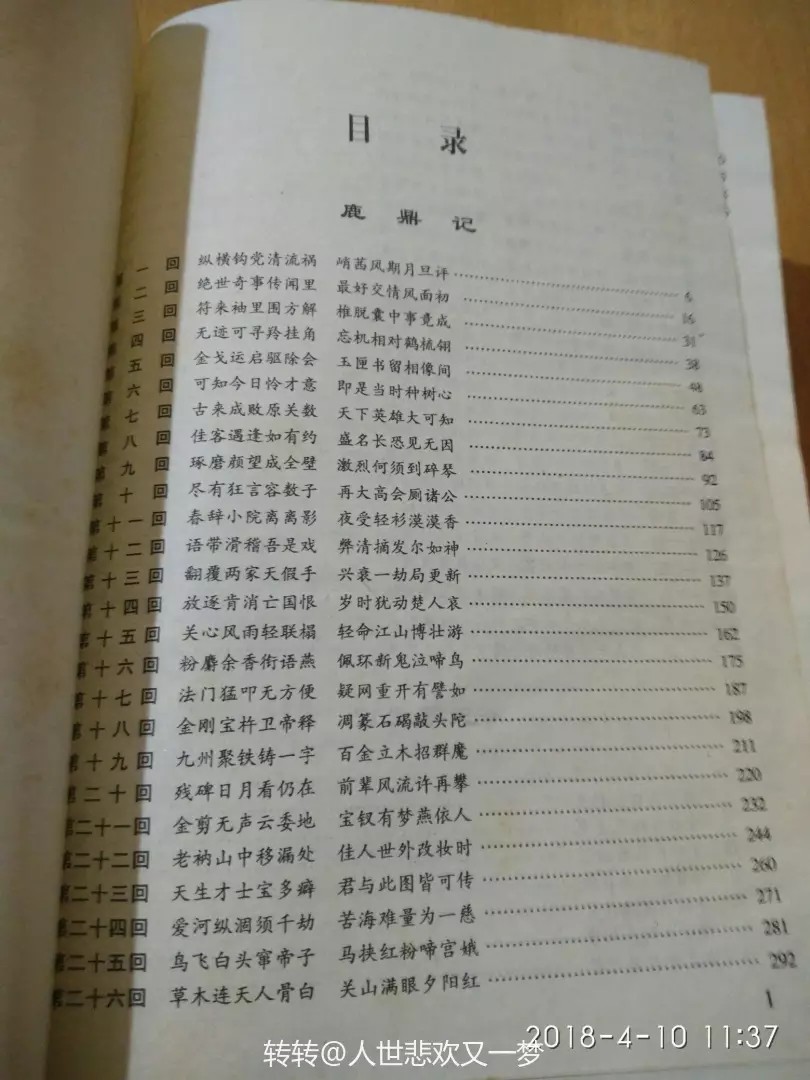 目 录
鹿 鼎 记
第一回 纵横钩党清流祸 峭茜风期月旦评 6
第二回 绝世奇事传闻里 最好交情风面初 16
第三回 符来袖里围方解 椎脱囊中事竟成 31
第四回 无迹可寻羚挂角 忘机相对鹤梳翎 38
第五回 金戈运启驱除会 玉匣书留想像间 48
第六回 可知今日怜才意 即是当时种树心 63
第七回 古来成败原关数 天下英雄大可知 73
第八回 佳客遇逢如有约 盛名长恐见无因 84
第九回 琢磨颜望成全璧 激烈何须到碎琴 92
第十回 尽有狂言容数子 再大高会厕诸公 105
第十一回 春辞小院离离影 夜受轻衫漠漠香 117
第十二回 语带滑稽吾是戏 弊清摘发尔如神 126
第十三回 翻覆两家天假手 兴衰一劫局更新 137
第十四回 放逐肯消亡国恨 岁时犹动楚人哀 150
第十五回 关心风雨轻联榻 轻命江山博壮游 162
第十六回 粉麝余香衔语燕 佩环新鬼泣啼鸟 175
第十七回 法门猛叩无方便 疑网重开有譬如 187
第十八回 金刚宝杵卫帝释 凋篆石碣敲头陀 198
第十九回 九州聚铁铸一字 百金立木招群魔 211
第二十回 残碑日月看仍在 前辈风流许再攀 220
第二十一回 金剪无声云委地 宝钗有梦燕依人 232
第二十二回 老衲山中移漏处 佳人世外改妆时 244
第二十三回 天生才士宝多癖 君与此图皆可传 260
第二十四回 爱河纵涸须千劫 苦海难量为一慈 271
第二十五回 鸟飞白头窜帝子 马挟红粉啼宫娥 281
第二十六回 草木连天人骨白 关山满眼夕阳红 292
1
2018-4-10 11:37
转转@人世悲欢又一梦